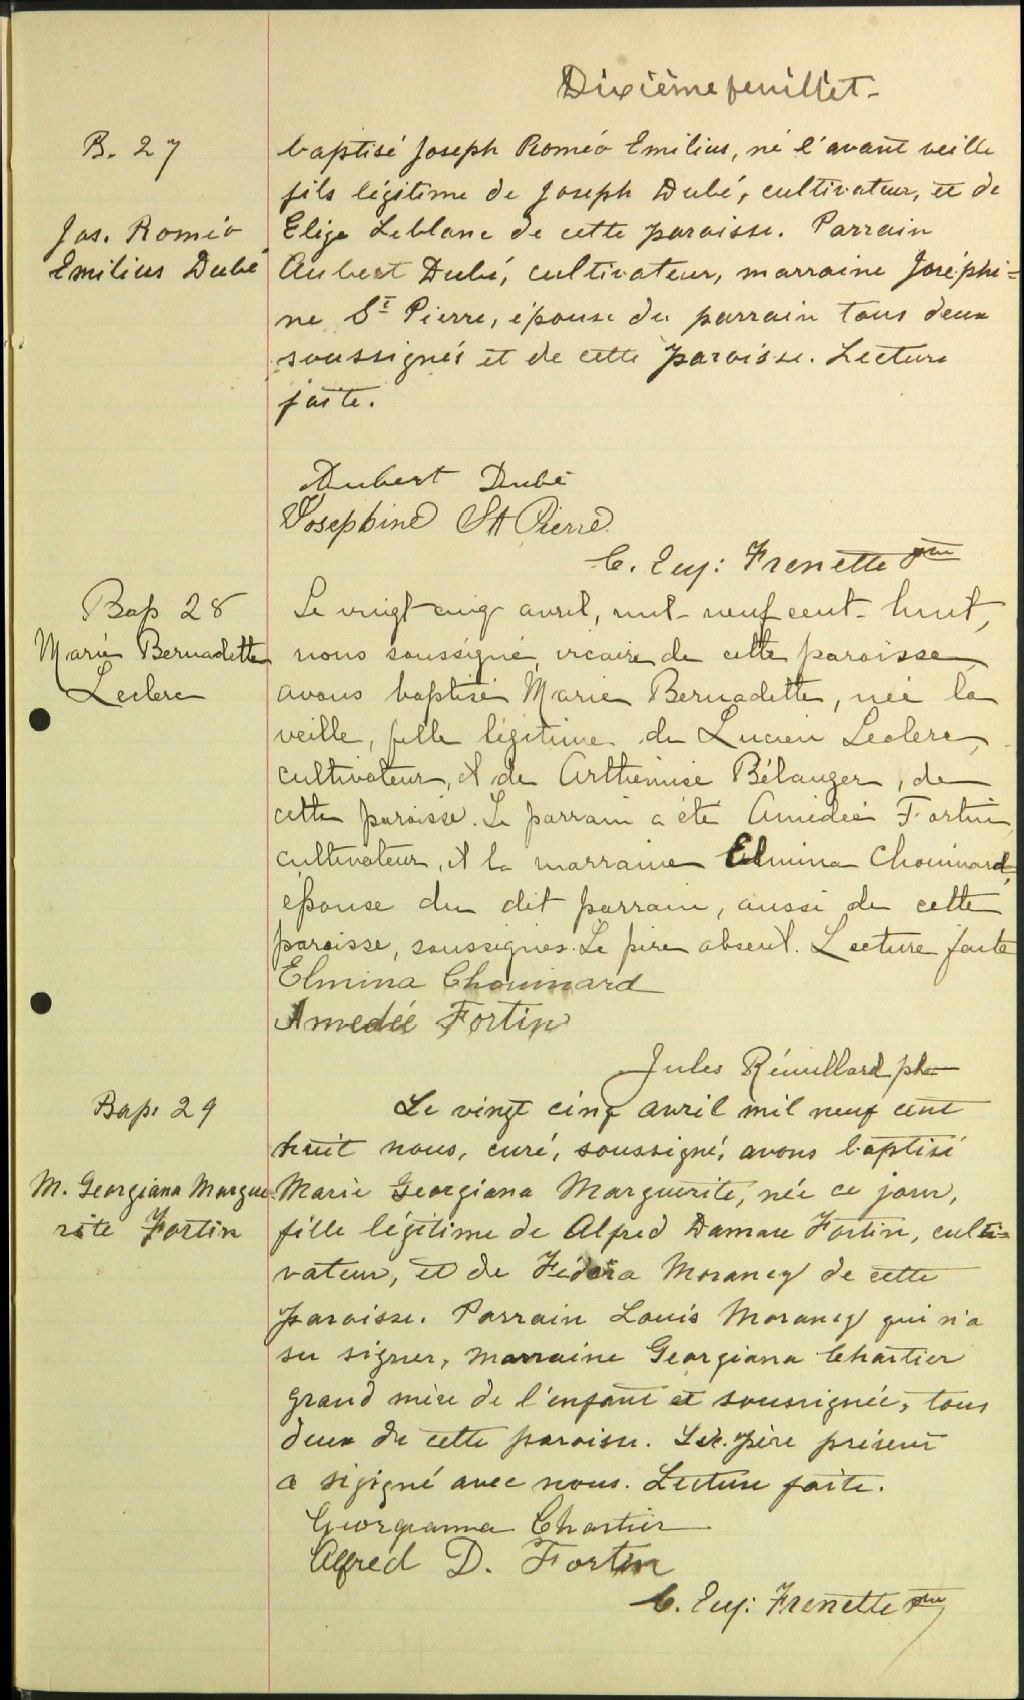 Dixième feuillet-
B. 27
Jos. Roméo
Emilius Dubé
baptisé Joseph Roméo Emilius, né l'avant veille
fils légitime de Joseph Dubé, cultivateur, et de
Eliza Leblanc de cette paroisse. Parrain
Aubert Dubé, cultivateur, marraine Joséphi=
ne St Pierre, épouse du parrain tous deux
soussignés et de cette paroisse. Lecture
faite.
Aubert Dubé
Josephine St Pierre
C. Eug: Frenette ptre
Bap 28
Marie Bernadette
Leclerc
Le vingt-cinq avril, mil-neuf cent-huit,
nous soussigné, vicaire de cette paroisse
avons baptisé Marie Bernadette, née la
veille, fille légitime de Lucien Leclerc,
cultivateur, et de Arthémise Bélanger, de
cette paroisse. Le parrain a été Amédée Fortin
cultivateur, et la marraine Elmina Chouinard,
épouse du dit parrain, aussi de cette
paroisse, soussignés. Le père absent. Lecture faite
Elmina Chouinard
Amedée Fortin
Jules Rémillard ptre
Bap. 29
M. Georgiana Margue-
rite Fortin
Le vingt cinq avril mil neuf cent
huit nous, curé, soussigné, avons baptisé
Marie Georgiana Marguerite, née ce jour,
fille légitime de Alfred Damase Fortin, culti=
vateur, et de Fédora Morancy de cette
paroisse. Parrain Louis Morancy qui n'a
su signer, marraine Georgiana Chartier
grand mère de l'enfant et soussignée, tous
deux de cette paroisse. Le père présent
a sigigné avec nous. Lecture faite.
Georgianna Chartier
Alfred D. Fortin
C. Eug: Frenette ptre